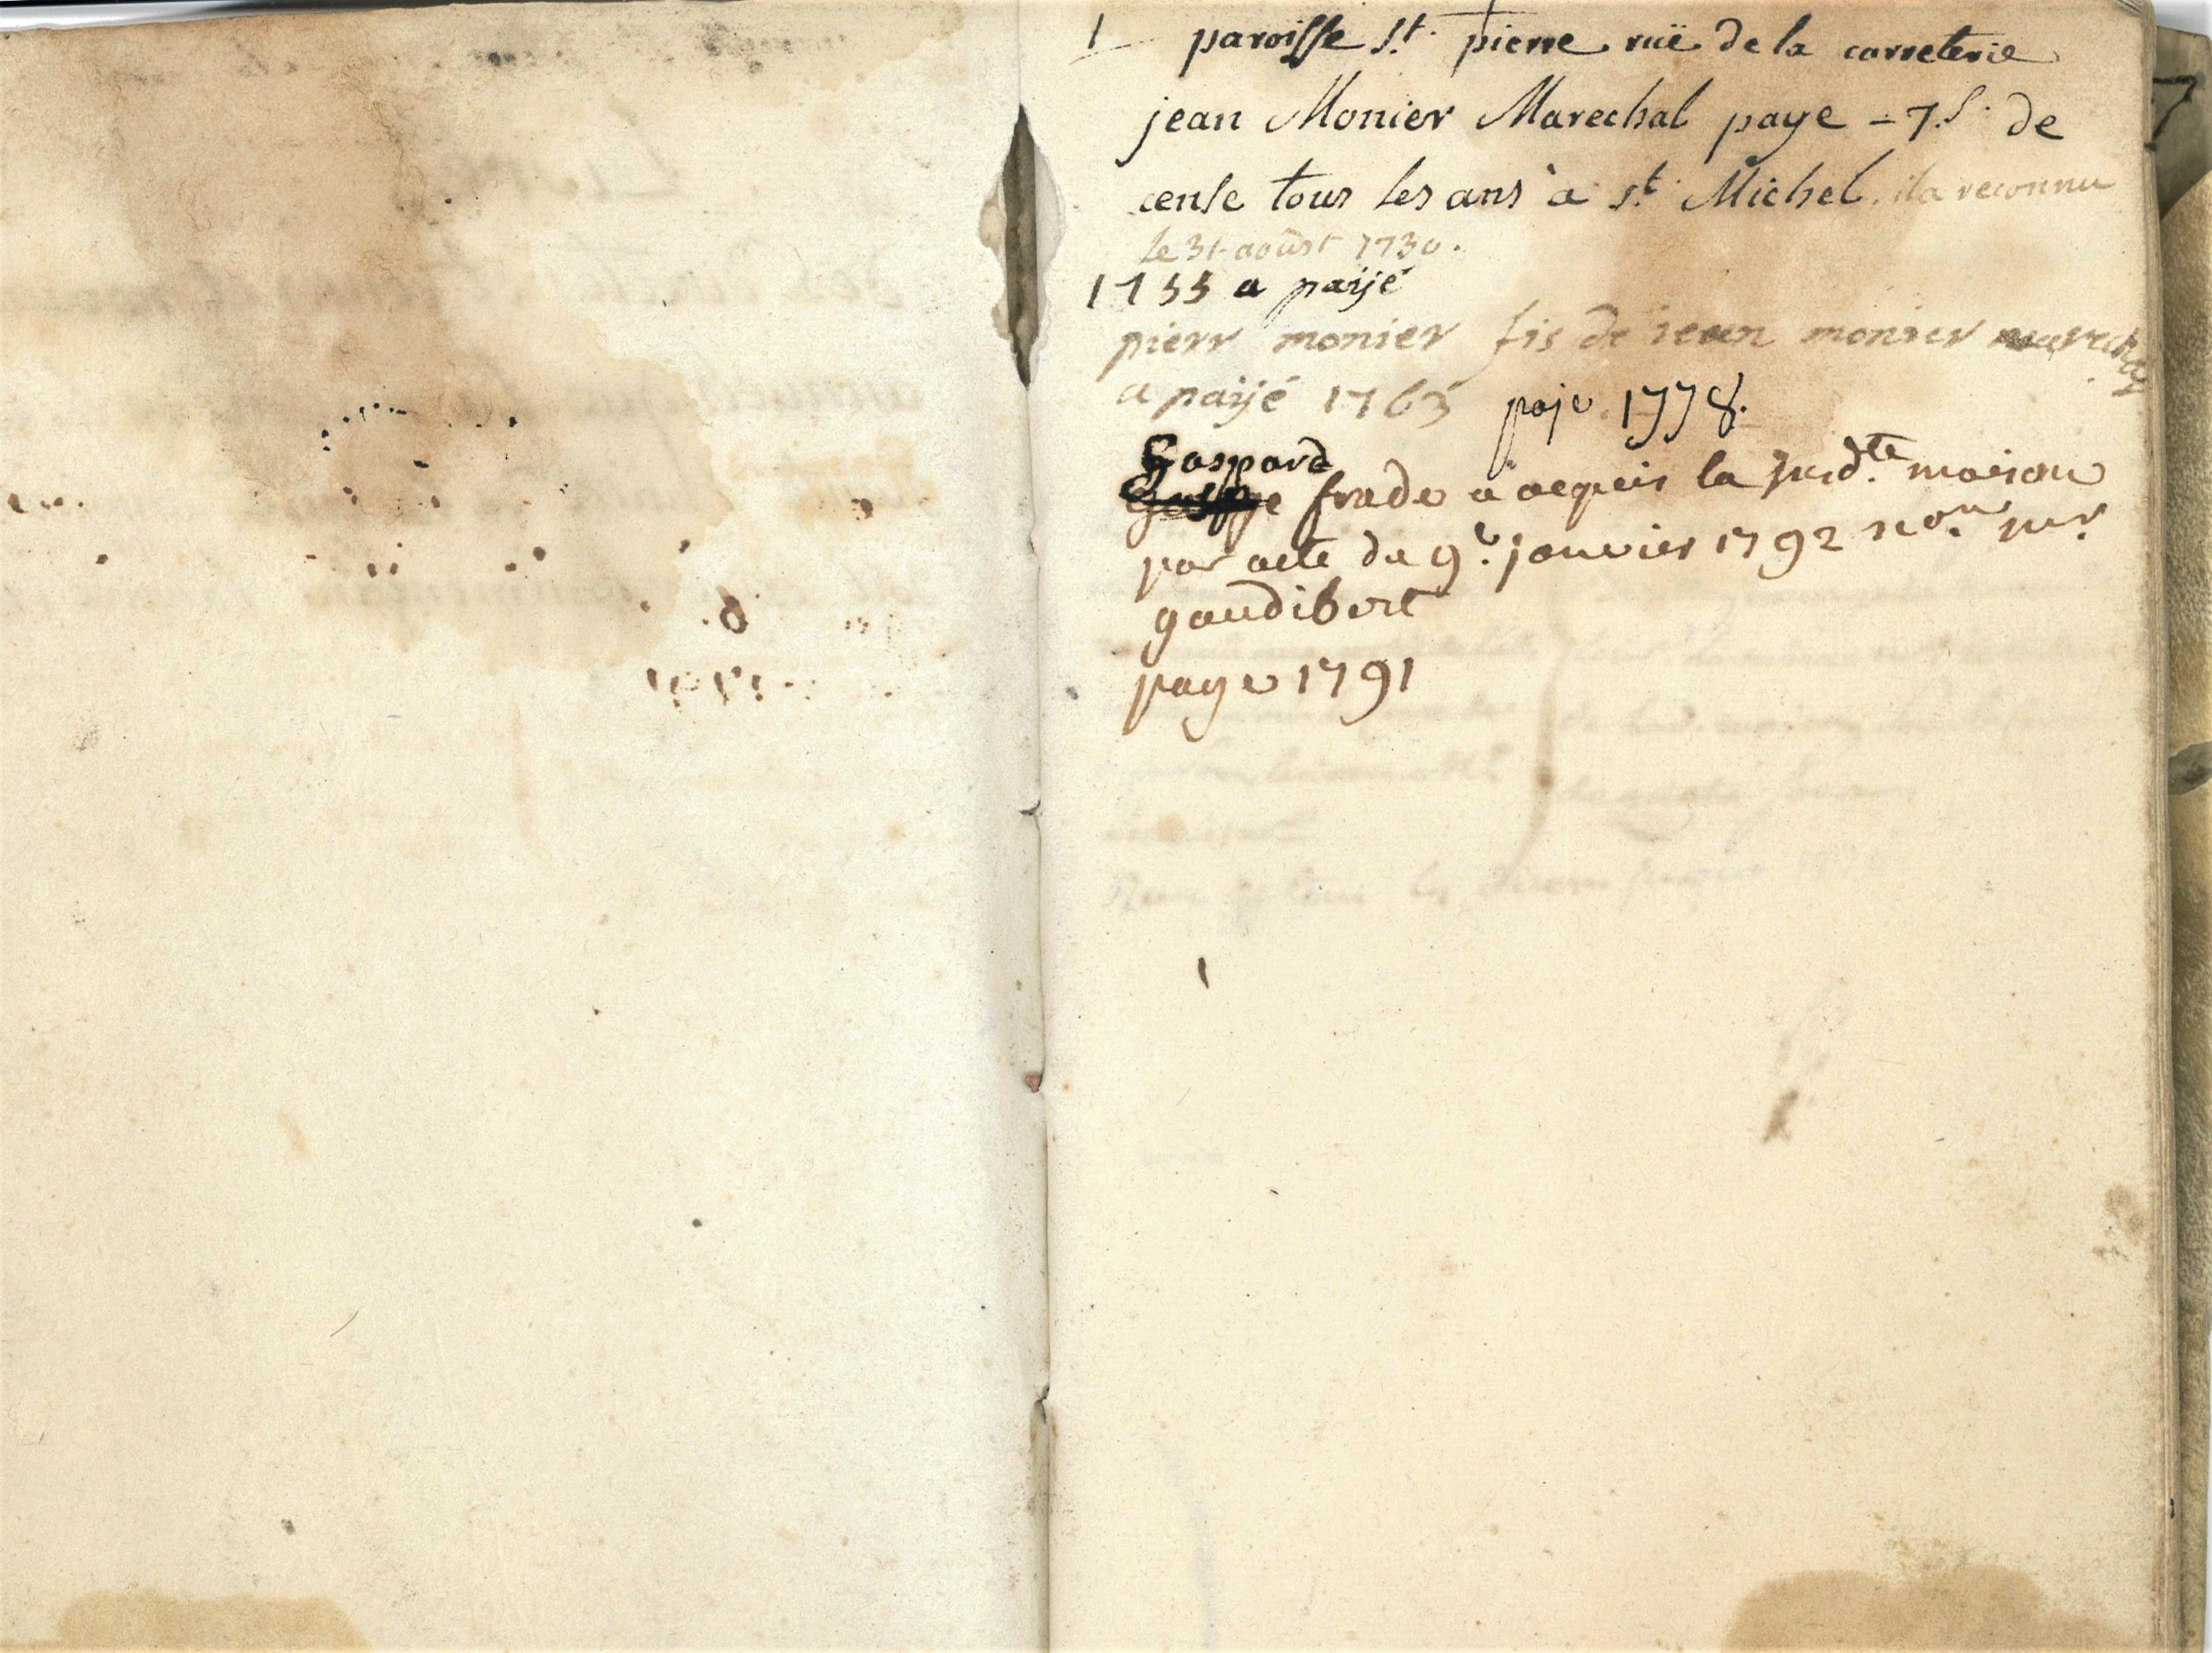 1 paroisse s.t pierre ruë de la carreterie
jean Monier Marechal paye - 7 s. de
cense tous les ans à s.t Michel. il a reconnu
le 31 aoûst 1730.
1755 a paijé
pierr monier fis de jean monier marechal
a paijé 1765 paje 1778.
Gaspard
frade a acquis la susd.te maison
par acte du 9.e janvier 1792 no.re mr.
gaudibert
paye 1791